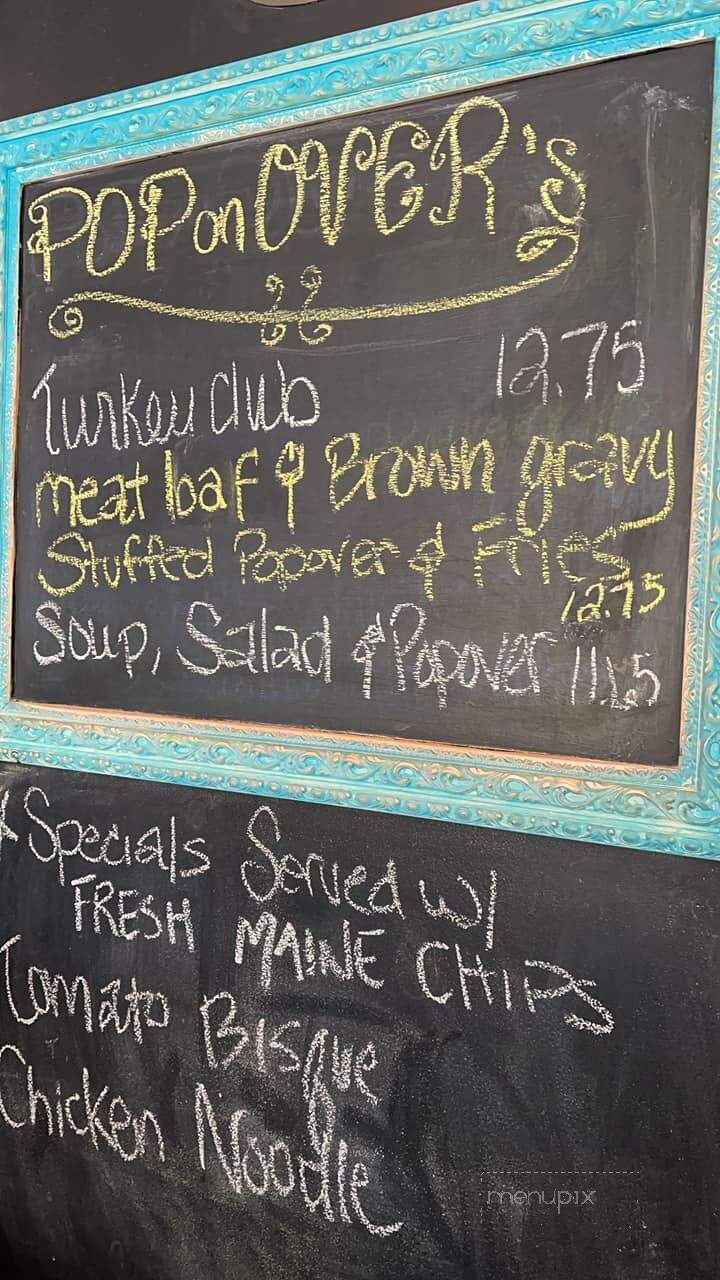 POP on OVER's
Turkey Club 12.75
meat loaf & Brown gravy
Stuffed Popover & Fries
12.75
Soup, Salad & Popover
* Specials Served w/
FRESH MAINE CHIPS
Tomato Bisque
Chicken Noodle
menupix